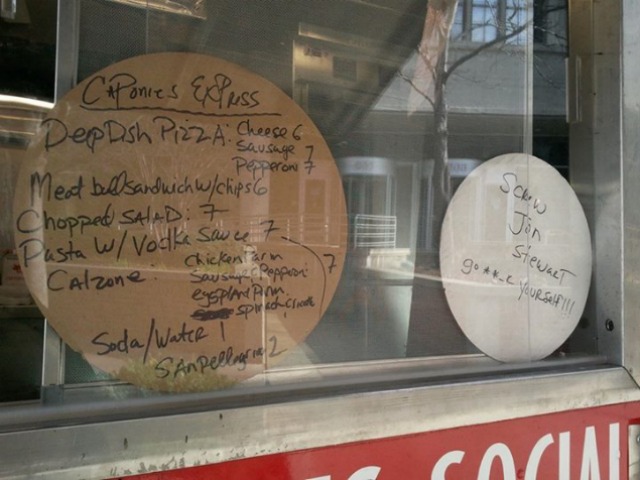 CAPonies ExPress
DeepDish PizzA: Cheese 6
Sausage 7
Pepperoni 7
Meat ball sandwich w/chips 6
Chopped SALAD: 7
Pasta w/ Vodka Sauce 7
Calzone
Chicken Parm
Sausage Pepperoni 7
eggplant Parm
spinach
Soda/Water 1
SAnpellegrino 2
Screw
Jon
Stewart
go
YOURSELF!!!
SOCIAL